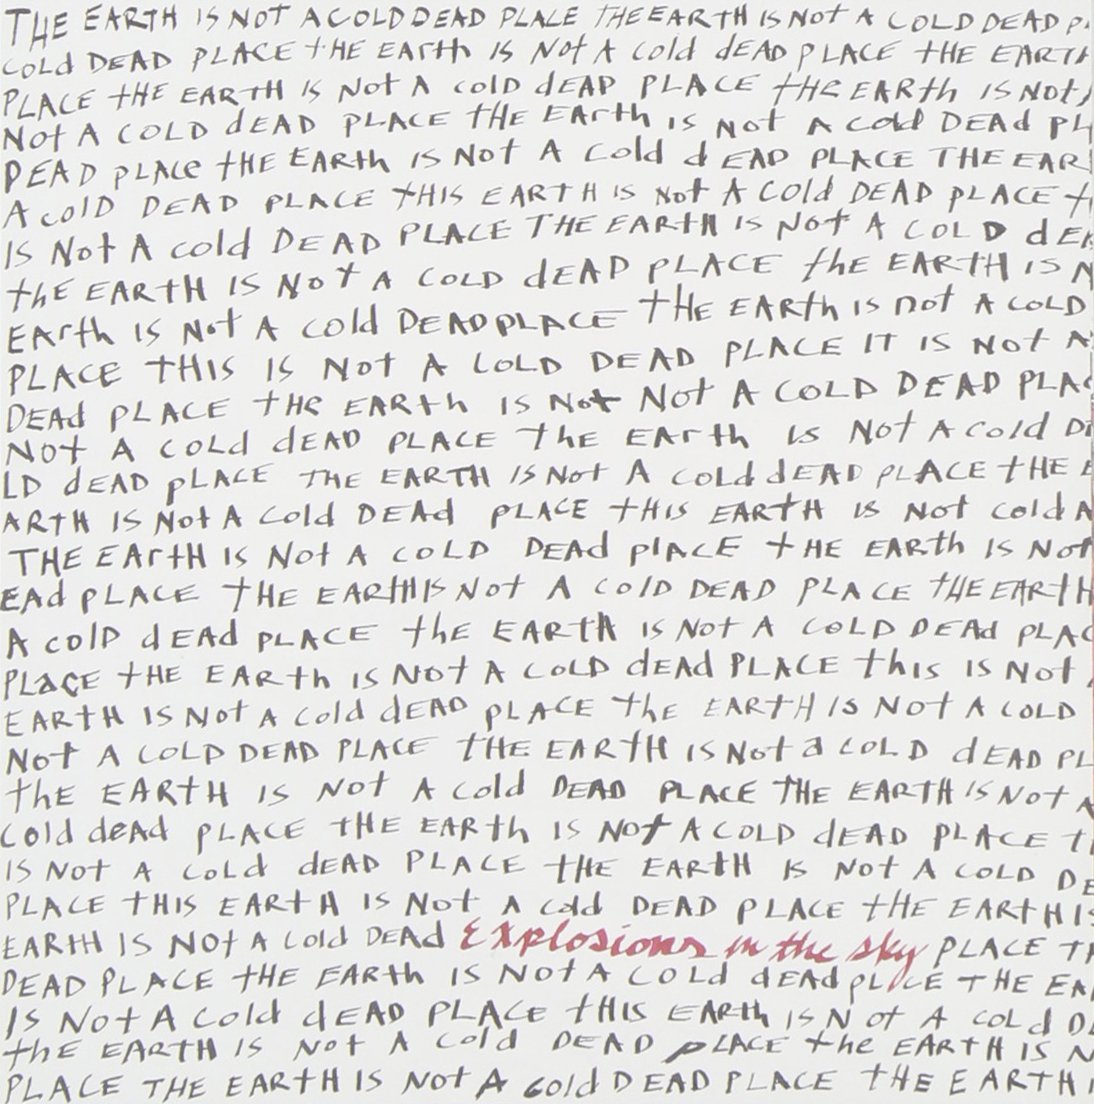 THE EARTH IS NOT A COLD DEAD PLACE THE EARTH IS NOT A COLD DEAD P
COLd DEAD PLACE tHE EARth IS Not A cold dEAD PLACE tHE EARTH
PLACE tHE EARTH IS Not A cold dEAD PLACE tHE EARth IS Not
Not A COLD dEAD PLACE tHE EArth is Not A cold DEAd PL
DEAD pLAce tHE EARth IS Not A cold dEAD PLACE THE EAR
A colD DEAD PLACE tHIS EARTH IS Not A Cold DEAD pLACE t
IS Not A cold DEAD PLACE THE EARtH IS Not A COLD dEA
thE EARtH IS Not A COLD dEAD pLACE thE EARtH IS N
EArth IS Not A cold DEAD pLACE tHE EARth is not A COLD
PLACE tHIS IS Not A COLD DEAD PLACE IT IS Not A
DEAd pLACE tHe EARth IS Not Not A COLD DEAD PLAC
Not A COLd dEAD pLACE thE EARth is Not A cold D
LD dEAD pLACE THE EARTH IS Not A COLd dEAD pLACE tHE E
ARTH IS Not A cold DEAd pLACE tHIS EARtH IS Not cold A
THE EArtH IS Not A COLD DEAd plACE tHE EARth IS Not
EAd pLACE tHE EARtH IS Not A cold DEAD PLACE tHE EARtH
A colD dEAd pLACE thE EARtH IS Not A COLD DEAd pLAC
PLACE tHE EARth IS Not A COLD dEAd PLACE this IS Not
EARtH IS Not A cold dEAD pLACE thE EARtH IS Not A COLD
Not A COLD DEAD PLACE tHE EARtH IS Not a COLD dEAD PL
thE EARtH IS Not A cold DEAD PLACE THE EARtH IS Not A
cold deAd pLACE tHE EARth IS Not A COLD dEAD PLACE t
IS Not A COLd dEAD PLACE tHE EARtH IS Not A COLD DE
PLACE THIS EARtH IS Not A cold DEAD pLACE tHE EARtH IS
EARtH IS Not A cold DEAD Explosions in the sky PLACE T
DEAD PLACE tHE EARth IS Not A COLD dEAd pLACE THE EA
IS Not A cold dEAD PLACE tHIS EARth IS Not A COLd D
thE EARTH IS Not A cold DEAD pLACE the EARtH IS N
PLACE THE EARtH IS Not A cold DEAD PLACE tHE EARTH